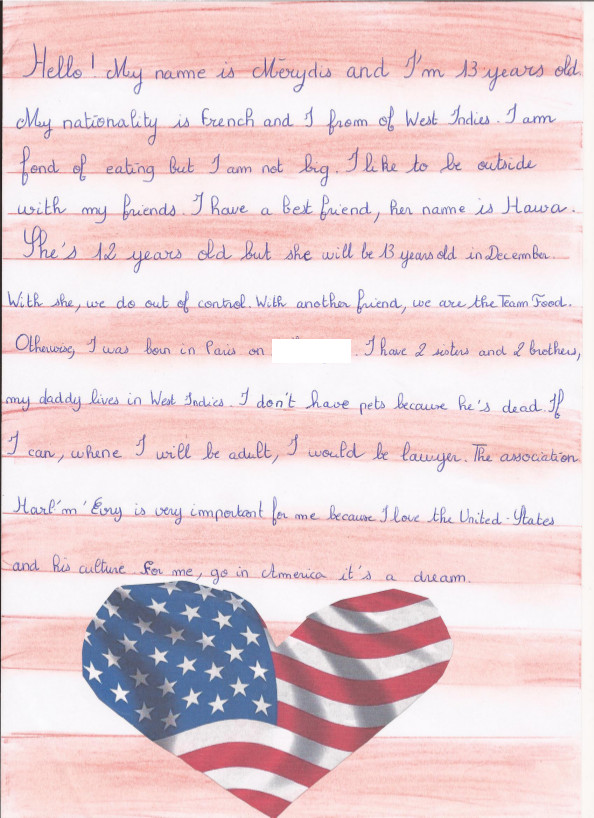 Hello! My name is Mérydis and I'm 13 years old.
My nationality is French and I from of West Indies. I am
fond of eating but I am not big. I like to be outside
with my friends. I have a best friend, her name is Hawa.
She's 12 years old but she will be 13 years old in December.
With she, we do out of control. With another friend, we are the Team Food.
Otherwise, I was born in Paris on . I have 2 sisters and 2 brothers,
my daddy lives in West Indies. I don't have pets because he's dead. If
I can, where I will be adult, I would be lawyer. The association
Harl'm'Evry is very important for me because I love the United-States
and his culture for me, go in America it's a dream.